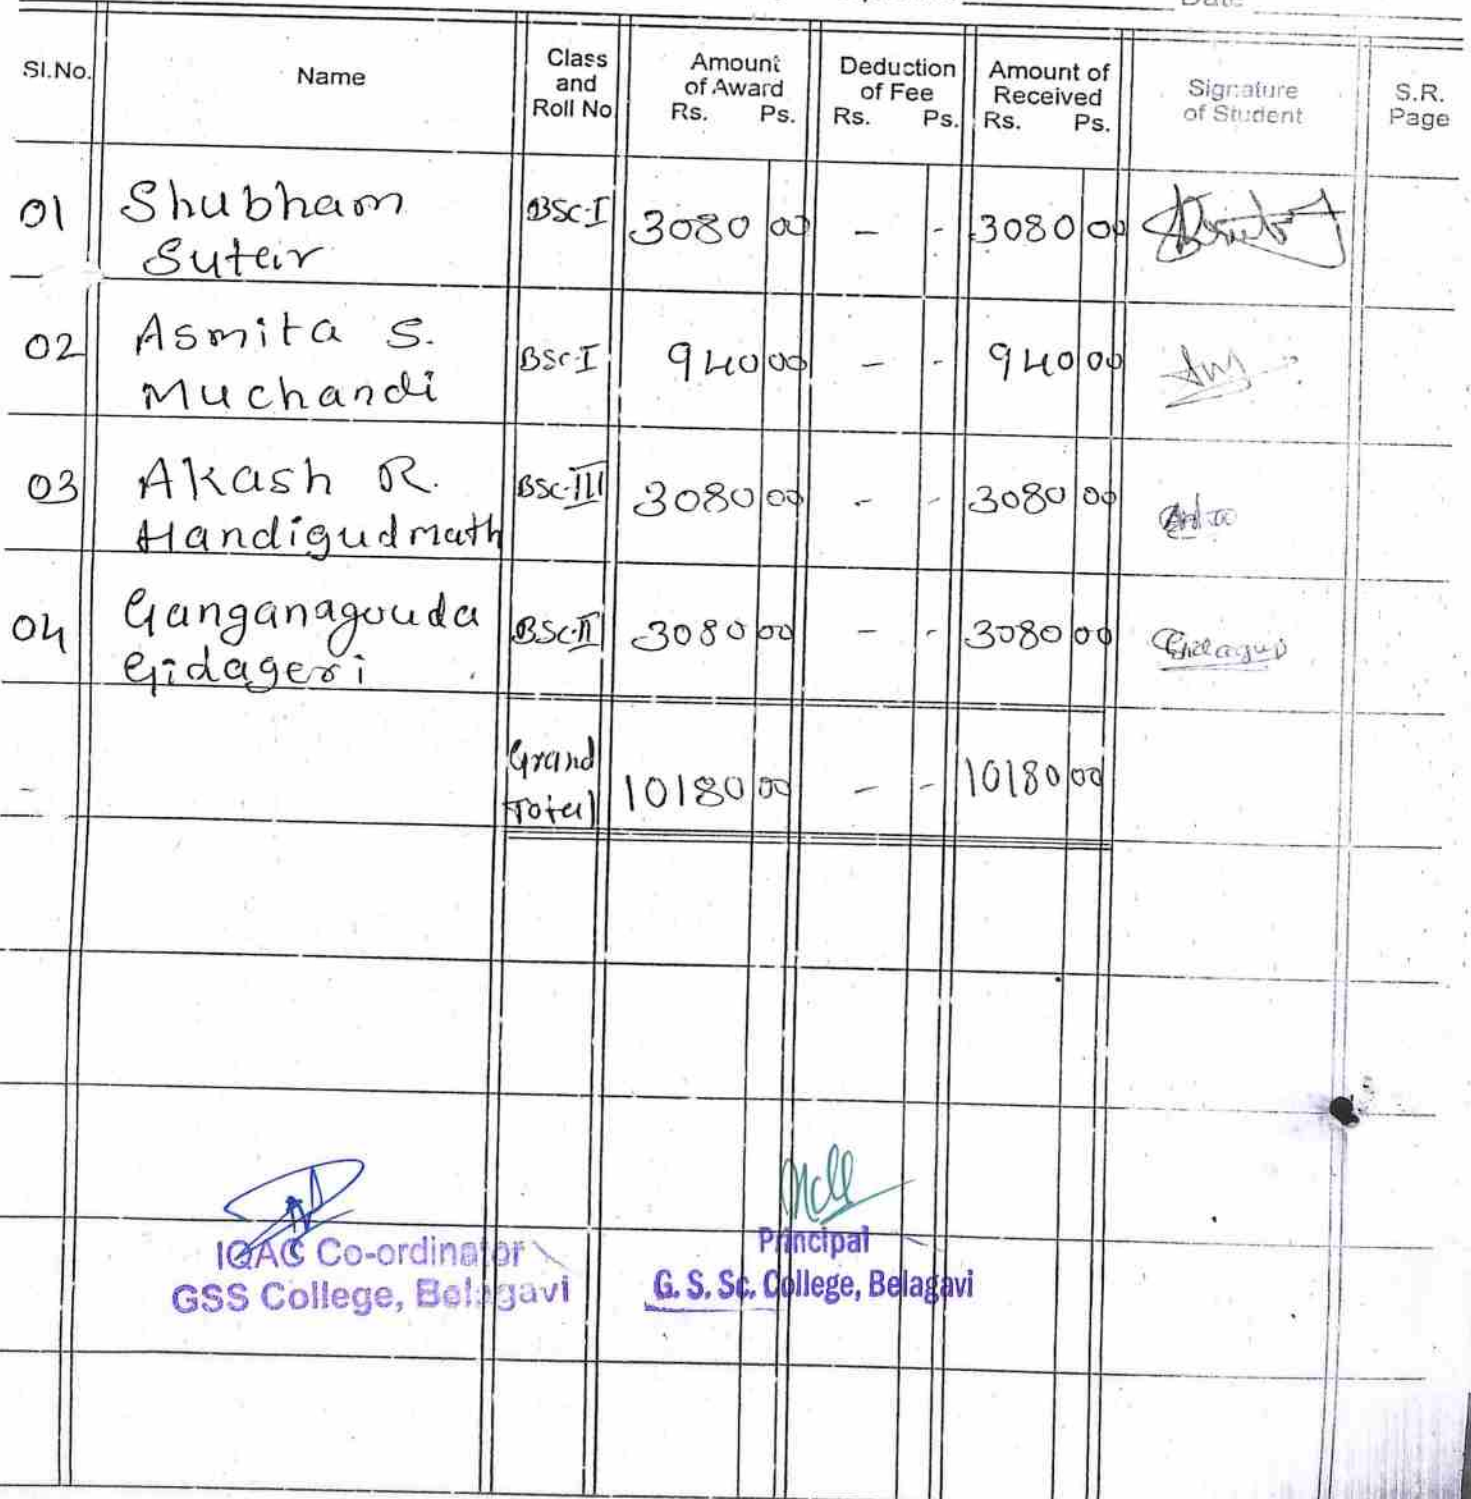 Date
Sl.No. Name Class and Roll No Amount of Award Rs. Ps. Deduction of Fee Rs. Ps. Amount of Received Rs. Ps. Signature of Student S.R. Page
01 Shubham BSc-I 3080 00 - - 3080 00
Suteir
02 Asmita S. BSc-I 940 00 - - 940 00
Muchandi
03 Akash R. BSc-III 3080 00 - - 3080 00
Handigudmath
04 Ganganagouda BSc-II 3080 00 - - 3080 00
Gidageri
Grand
Total 10180 00 - - 10180 00
IQAC Co-ordinator
GSS College, Belagavi
Principal
G. S. Sc. College, Belagavi